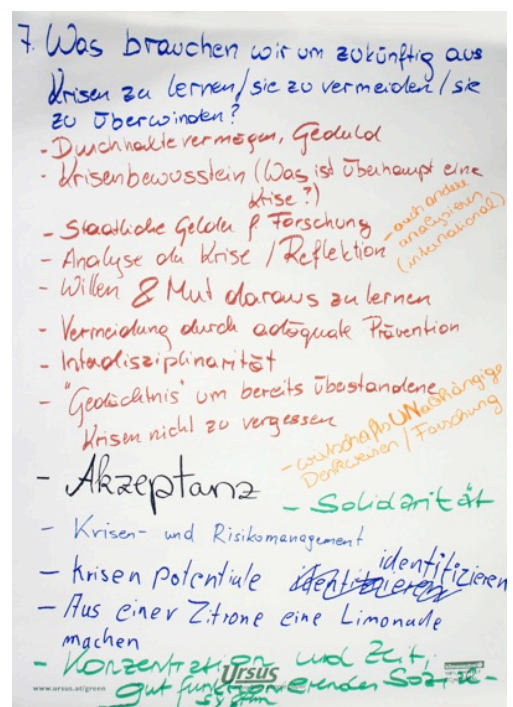 7. Was brauchen wir um zukünftig aus
Krisen zu lernen/sie zu vermeiden/sie
zu überwinden?
- Durchhaltevermögen, Geduld
- Krisenbewusstein (Was ist überhaupt eine
Krise?)
- Staatliche Gelder f. Forschung
- auch andere
analysieren
(international)
- Analyse der Krise / Reflektion
- Willen & Mut daraus zu lernen
- Vermeidung durch adäquate Prävention
- Interdisziplinarität
- "Gedächtnis" um bereits überstandene
Krisen nicht zu vergessen
- wirtschaftsUNabhängige
Denkweisen / Forschung
- Akzeptanz
- Solidarität
- Krisen- und Risikomanagement
- Krisen potentiale identifizieren
- Aus einer Zitrone eine Limonade
machen
- Konzentration und Zeit,
gut funktionierendes Sozial-
system
Ursus
www.ursus.at/green